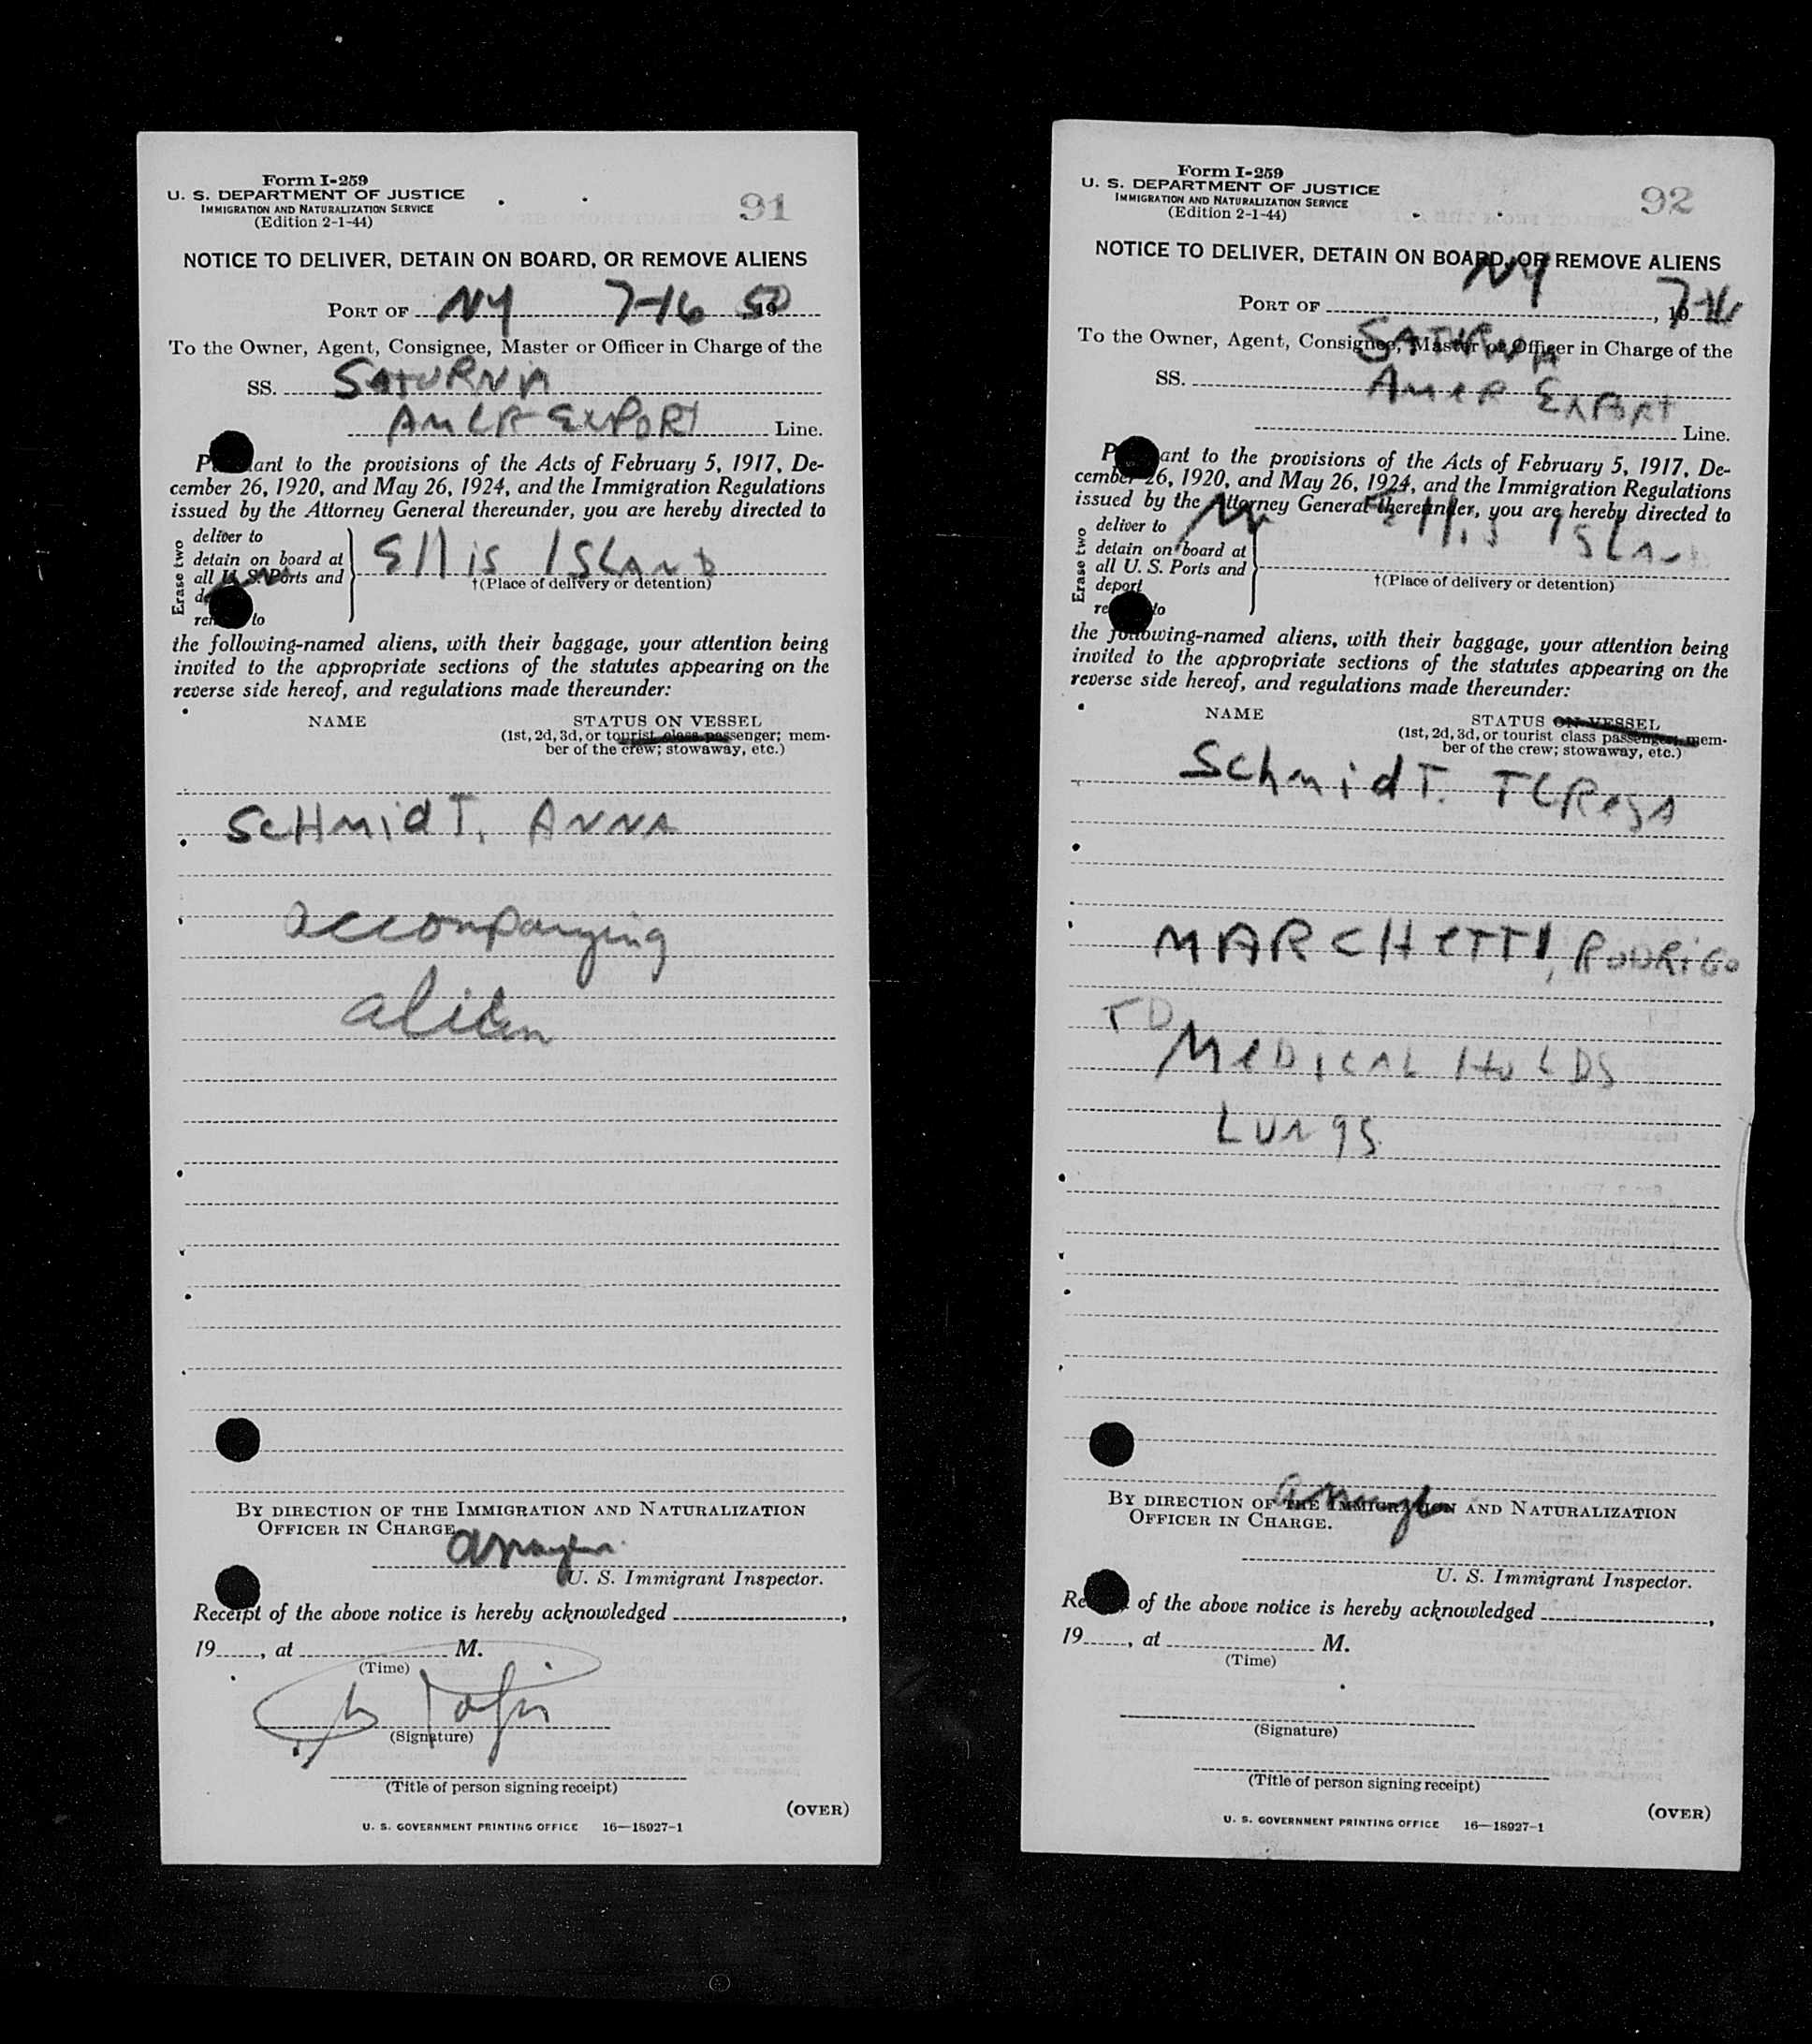 Form I-259
U. S. DEPARTMENT OF JUSTICE
IMMIGRATION AND NATURALIZATION SERVICE
(Edition 2-1-44)
91
NOTICE TO DELIVER, DETAIN ON BOARD, OR REMOVE ALIENS
PORT OF NY 7-16 1950
To the Owner, Agent, Consignee, Master or Officer in Charge of the
SS. SATURNIA
AMER EXPORT Line.
ant to the provisions of the Acts of February 5, 1917, De-
cember 26, 1920, and May 26, 1924, and the Immigration Regulations
issued by the Attorney General thereunder, you are hereby directed to
Erase two
deliver to
detain on board at
all U. S. Ports and
to
Ellis ISLAND
†(Place of delivery or detention)
the following-named aliens, with their baggage, your attention being
invited to the appropriate sections of the statutes appearing on the
reverse side hereof, and regulations made thereunder:
NAME STATUS ON VESSEL
(1st, 2d, 3d, or tourist class passenger; mem-
ber of the crew; stowaway, etc.)
SCHMIDT, ANNA
accompanying
alien
BY DIRECTION OF THE IMMIGRATION AND NATURALIZATION
OFFICER IN CHARGE
U. S. Immigrant Inspector.
Receipt of the above notice is hereby acknowledged ,
19 , at M.
(Time)
(Signature)
(Title of person signing receipt)
(OVER)
U. S. GOVERNMENT PRINTING OFFICE 16—18927-1
Form I-259
U. S. DEPARTMENT OF JUSTICE
IMMIGRATION AND NATURALIZATION SERVICE
(Edition 2-1-44)
92
NOTICE TO DELIVER, DETAIN ON BOARD, OR REMOVE ALIENS
NY
PORT OF , 19 7-16
To the Owner, Agent, Consignee, Master or Officer in Charge of the
SATURNIA
SS. AMER EXPORT
Line.
ant to the provisions of the Acts of February 5, 1917, De-
cember 26, 1920, and May 26, 1924, and the Immigration Regulations
issued by the Attorney General thereunder, you are hereby directed to
Erase two
deliver to
detain on board at
all U. S. Ports and
deport
to
Ellis ISLAND
†(Place of delivery or detention)
the following-named aliens, with their baggage, your attention being
invited to the appropriate sections of the statutes appearing on the
reverse side hereof, and regulations made thereunder:
NAME STATUS ON VESSEL
(1st, 2d, 3d, or tourist class passenger; mem-
ber of the crew; stowaway, etc.)
Schmidt. TEResA
MARCHETTI, RODRIGO
TD
MEDICAL HOLDS
Lungs
BY DIRECTION OF THE IMMIGRATION AND NATURALIZATION
OFFICER IN CHARGE.
U. S. Immigrant Inspector.
of the above notice is hereby acknowledged ,
19 , at M.
(Time)
(Signature)
(Title of person signing receipt)
(OVER)
U. S. GOVERNMENT PRINTING OFFICE 16—18927-1